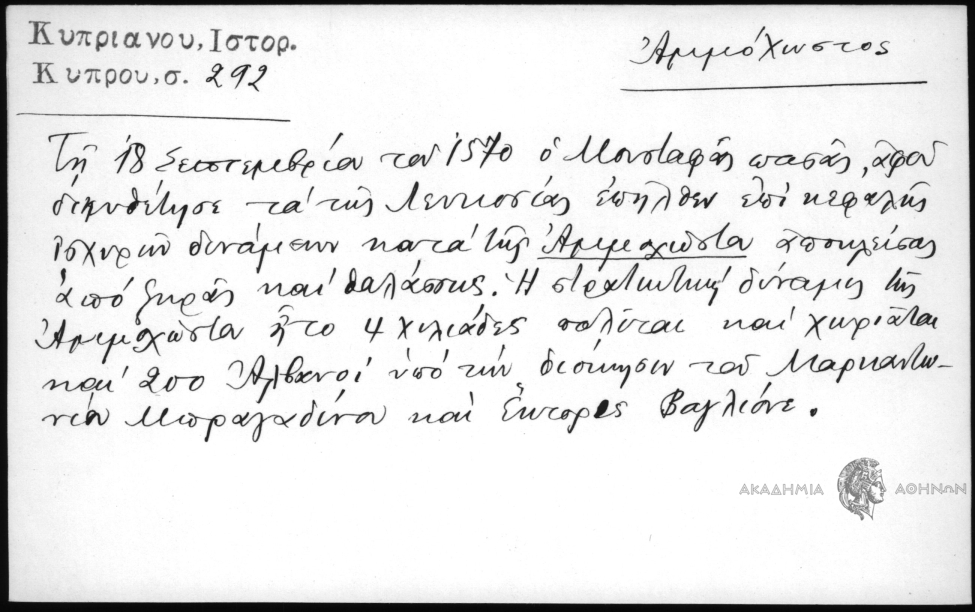 Κυπριανου, Ιστορ.
Κυπρου, σ. 292
Ἀμμόχωστος
Τῇ 18 Σεπτεμβρίου τοῦ 1570 ὁ Μουσταφᾶς πασᾶς, ἀφοῦ
διευθέτησε τὰ τῆς Λευκοσίας ἐπῆλθεν ἐπὶ κεφαλῆς
ἰσχυρῶν δυνάμεων κατὰ τῆς Ἀμμοχώστου ἀποκλείσας
ἀπό ξηρᾶς καὶ θαλάσσης. Ἡ στρατιωτική δύναμις τῆς
Ἀμμοχώστου ἦτο 4 χιλιάδες πολῖται καὶ χωριᾶται
καὶ 200 Ἀλβανοὶ ὑπό τὴν διοίκησιν τοῦ Μαρκαντω-
νίου Μπραγαδίνου καὶ Ἕκτορος Βαγλιόνε.
ΑΚΑΔΗΜΙΑ ΑΘΗΝΩΝ